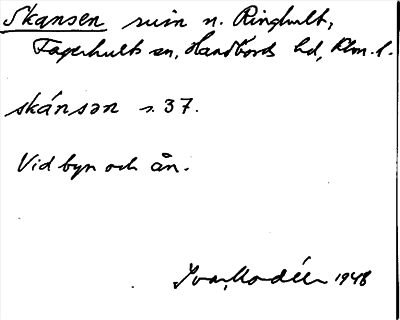 Skansen ruin n. Ringhult,
Fagerhults sn, Handbörds hd, Klm. l.
skánsən s. 37.
Vid byn och ån.
Ivar Modéer 1948